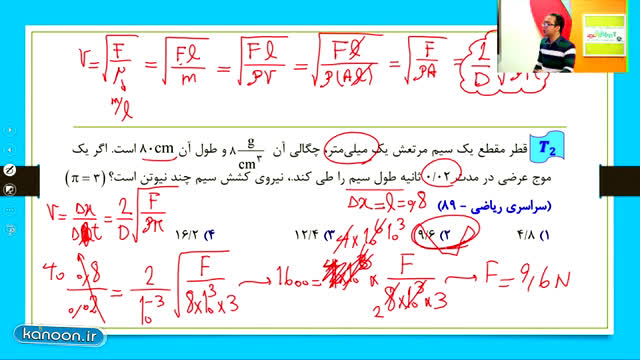 V = √(F/μ) = √(Fl/m) = √(Fl/ρV) = √(Fl/ρ(Al)) = √(F/ρA) = 2/D
m/l
T₂ قطر مقطع یک سیم مرتعش یک میلی‌متر، چگالی آن ۸ g/cm³ و طول آن ۸۰cm است. اگر یک
موج عرضی در مدت ۰/۰۲ ثانیه طول سیم را طی کند، نیروی کشش سیم چند نیوتن است؟ (π = ۳)
(سراسری ریاضی - ۸۹)
Δx = l = 0,8
V = Δx/Δt = 2/D √(F/ρπ)
۱) ۴/۸ ۲) ۹/۶ ۳) ۱۲/۴ ۴) ۱۶/۲
4×10⁶ 10³
40 0,8/0,02 = 2/10⁻³ √(F/8×10³×3) → 1600 = × F/8×10³×3 → F = 9,6 N
2
kanoon.ir